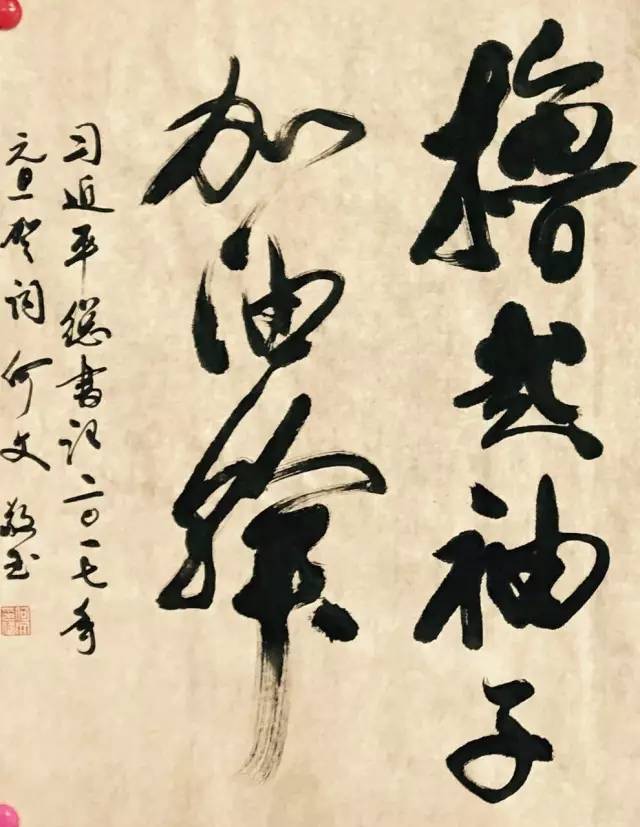 撸起袖子
加油幹
习近平總書记二〇一七年
元旦贺词 何文敬书